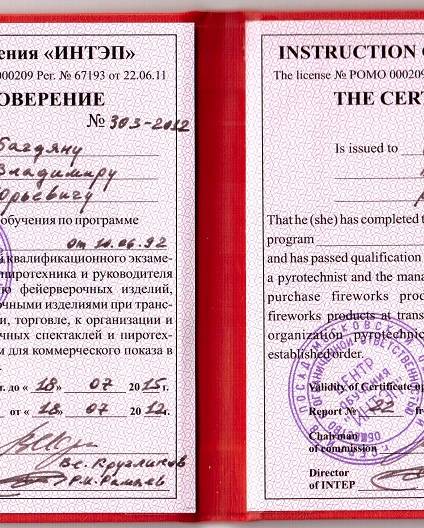 ения «ИНТЭП»
000209 Рег. № 67193 от 22.06.11
ОВЕРЕНИЕ
№ 303-2012
Багдяну
Владимиру
Юрьевичу
обучения по программе
от 10.06.92
квалификационного экзаме-
пиротехника и руководителя
ю фейерверочных изделий,
очными изделиями при транс-
и, торговле, к организации и
чных спектаклей и пиротех-
м для коммерческого показа в
т. до « 18 » 07 2015г.
от « 18 » 07 2012г.
Вс. Кругликов
INSTRUCTION
The license № POMO 000209
THE CERT
Is issued to
That he (she) has completed t
program
and has passed qualification
a pyrotechnist and the mana
purchase fireworks prod
fireworks products at trans
organization pyrotechnic
established order.
Validity of Certificate up
Report № 22 fr
Chairman
of commission
Director
of INTEP
ЦЕНТР
ОБУЧЕНИЯ
ИНТЭП